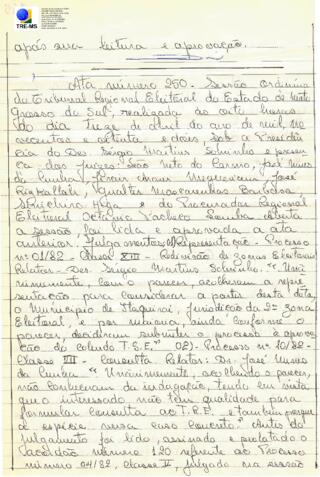 TRE-MS
após sua leitura e aprovação.
Ata número 250. Sessão Ordinária
do Tribunal Regional Eleitoral do Estado de Mato
Grosso do Sul, realizada às oito horas
do dia treze de abril do ano de mil, no
vecentos e oitenta e dois, sob a Presidên
cia do Des. Sérgio Martins Sobrinho e presen
ça dos Juízes: Leão Neto do Carmo, José Nunes
da Cunha, José
Rizkallah, Gualter Mascarenhas Barbosa,
Shichiro Higa e do Procurador Regional
Eleitoral Octávio Pacheco Aberta
a sessão, foi lida e aprovada a ata
anterior. Julgamentos: Representação - Processo
nº 01/82 - Classe XIII - Redivisão de zonas Eleitorais
Relator - Des. Sérgio Martins Sobrinho. "Uná
nimemente, com o parecer, acolheram a repre
sentação para considerar a partir desta data,
o Município de Itaquiraí, jurisdição da 2ª Zona
Eleitoral, e por maioria, ainda conforme o
parecer, decidiram submeter o processo a aprova
ção do colendo T.S.E." 02). Processo nº 10/82 -
Classe VII - Consulta. Relator: Dr. José Nunes
da Cunha. "Unanimemente, acolhendo o parecer,
não conheceram da indagação, tendo em vista
que o interessado não tem qualidade para
formular consulta ao T.R.E. e também porque
a espécie versa caso concreto." Antes do
julgamento foi lido, assinado e prolatado o
Acórdão número 120 referente ao Processo
número 04/82, Classe II, julgado na sessão